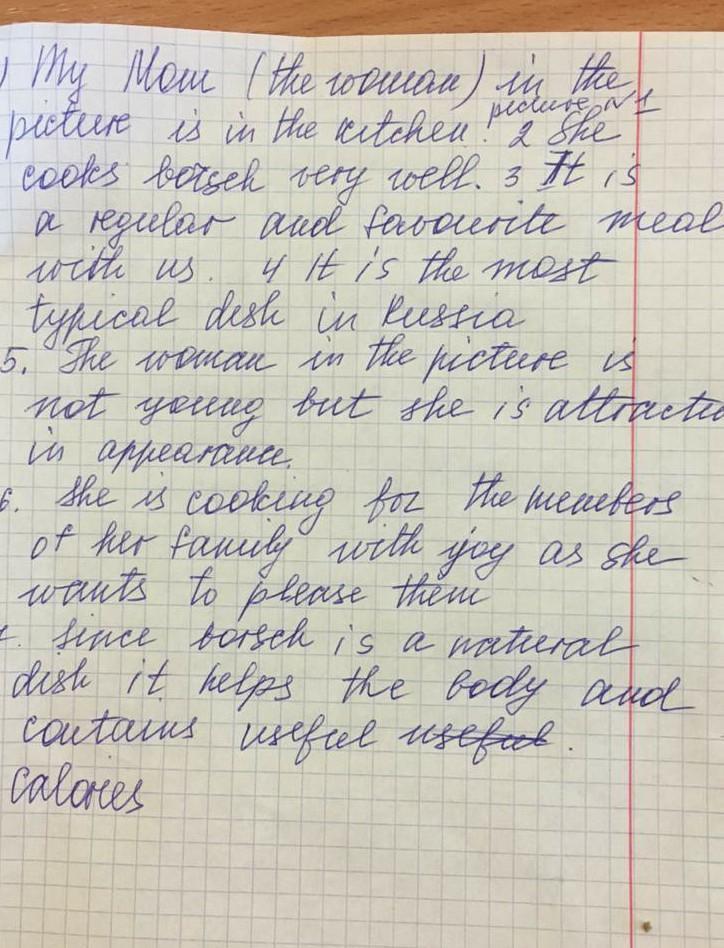 ) My Mom (the woman) in the
picture is in the kitchen. picture N 1 2 She
cooks borsch very well. 3 It is
a regular and favourite meal
with us. 4 It is the most
typical dish in Russia
5. The woman in the picture is
not young but she is attractive
in appearance.
6. She is cooking for the members
of her family with yoy as she
wants to please them
7. Since borsch is a natural
dish it helps the body and
contains useful useful.
Calories